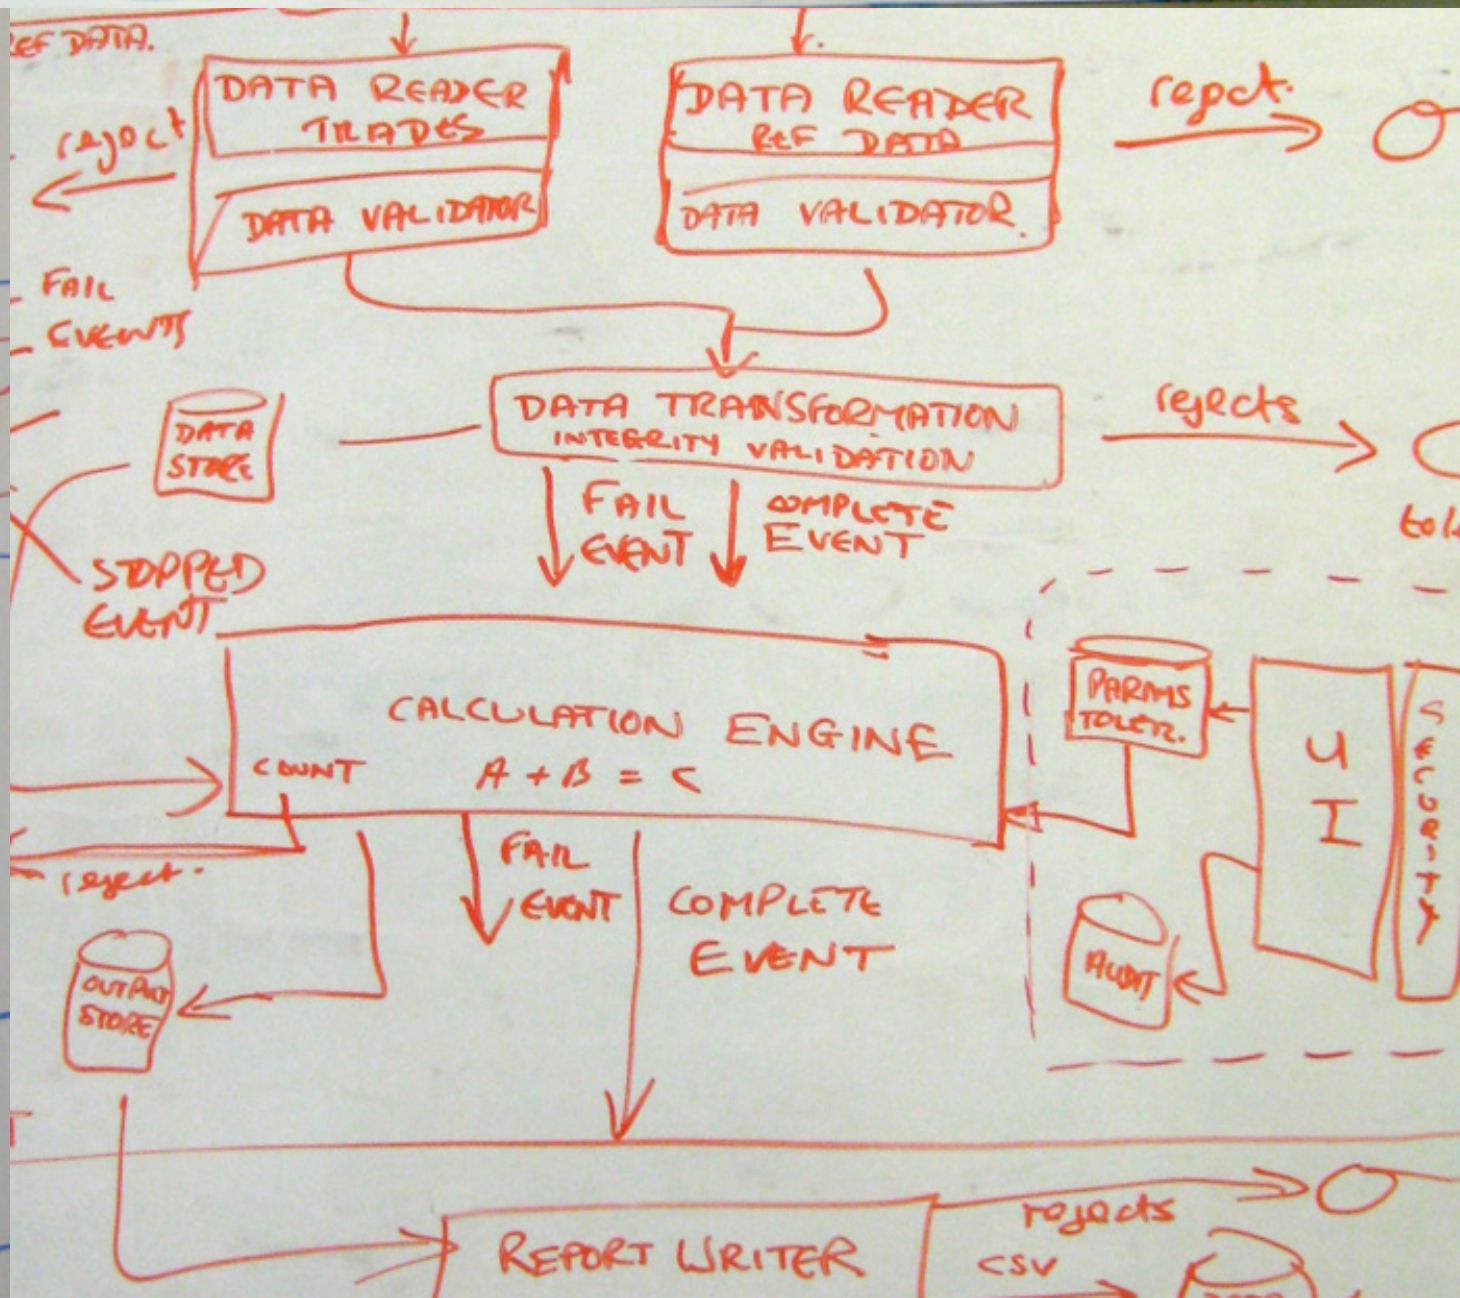 REF DATA.
DATA READER
TRADES
DATA VALIDATOR
DATA READER
REF DATA
DATA VALIDATOR.
reject
reject.
FAIL
EVENTS
DATA
STORE
DATA TRANSFORMATION
INTEGRITY VALIDATION
rejects
FAIL
EVENT
COMPLETE
EVENT
STOPPED
EVENT
CALCULATION ENGINE
COUNT
A + B = C
PARAMS
TOLER.
UI
SECURITY
reject.
FAIL
EVENT
COMPLETE
EVENT
AUDIT
OUTPUT
STORE
REPORT WRITER
rejects
CSV